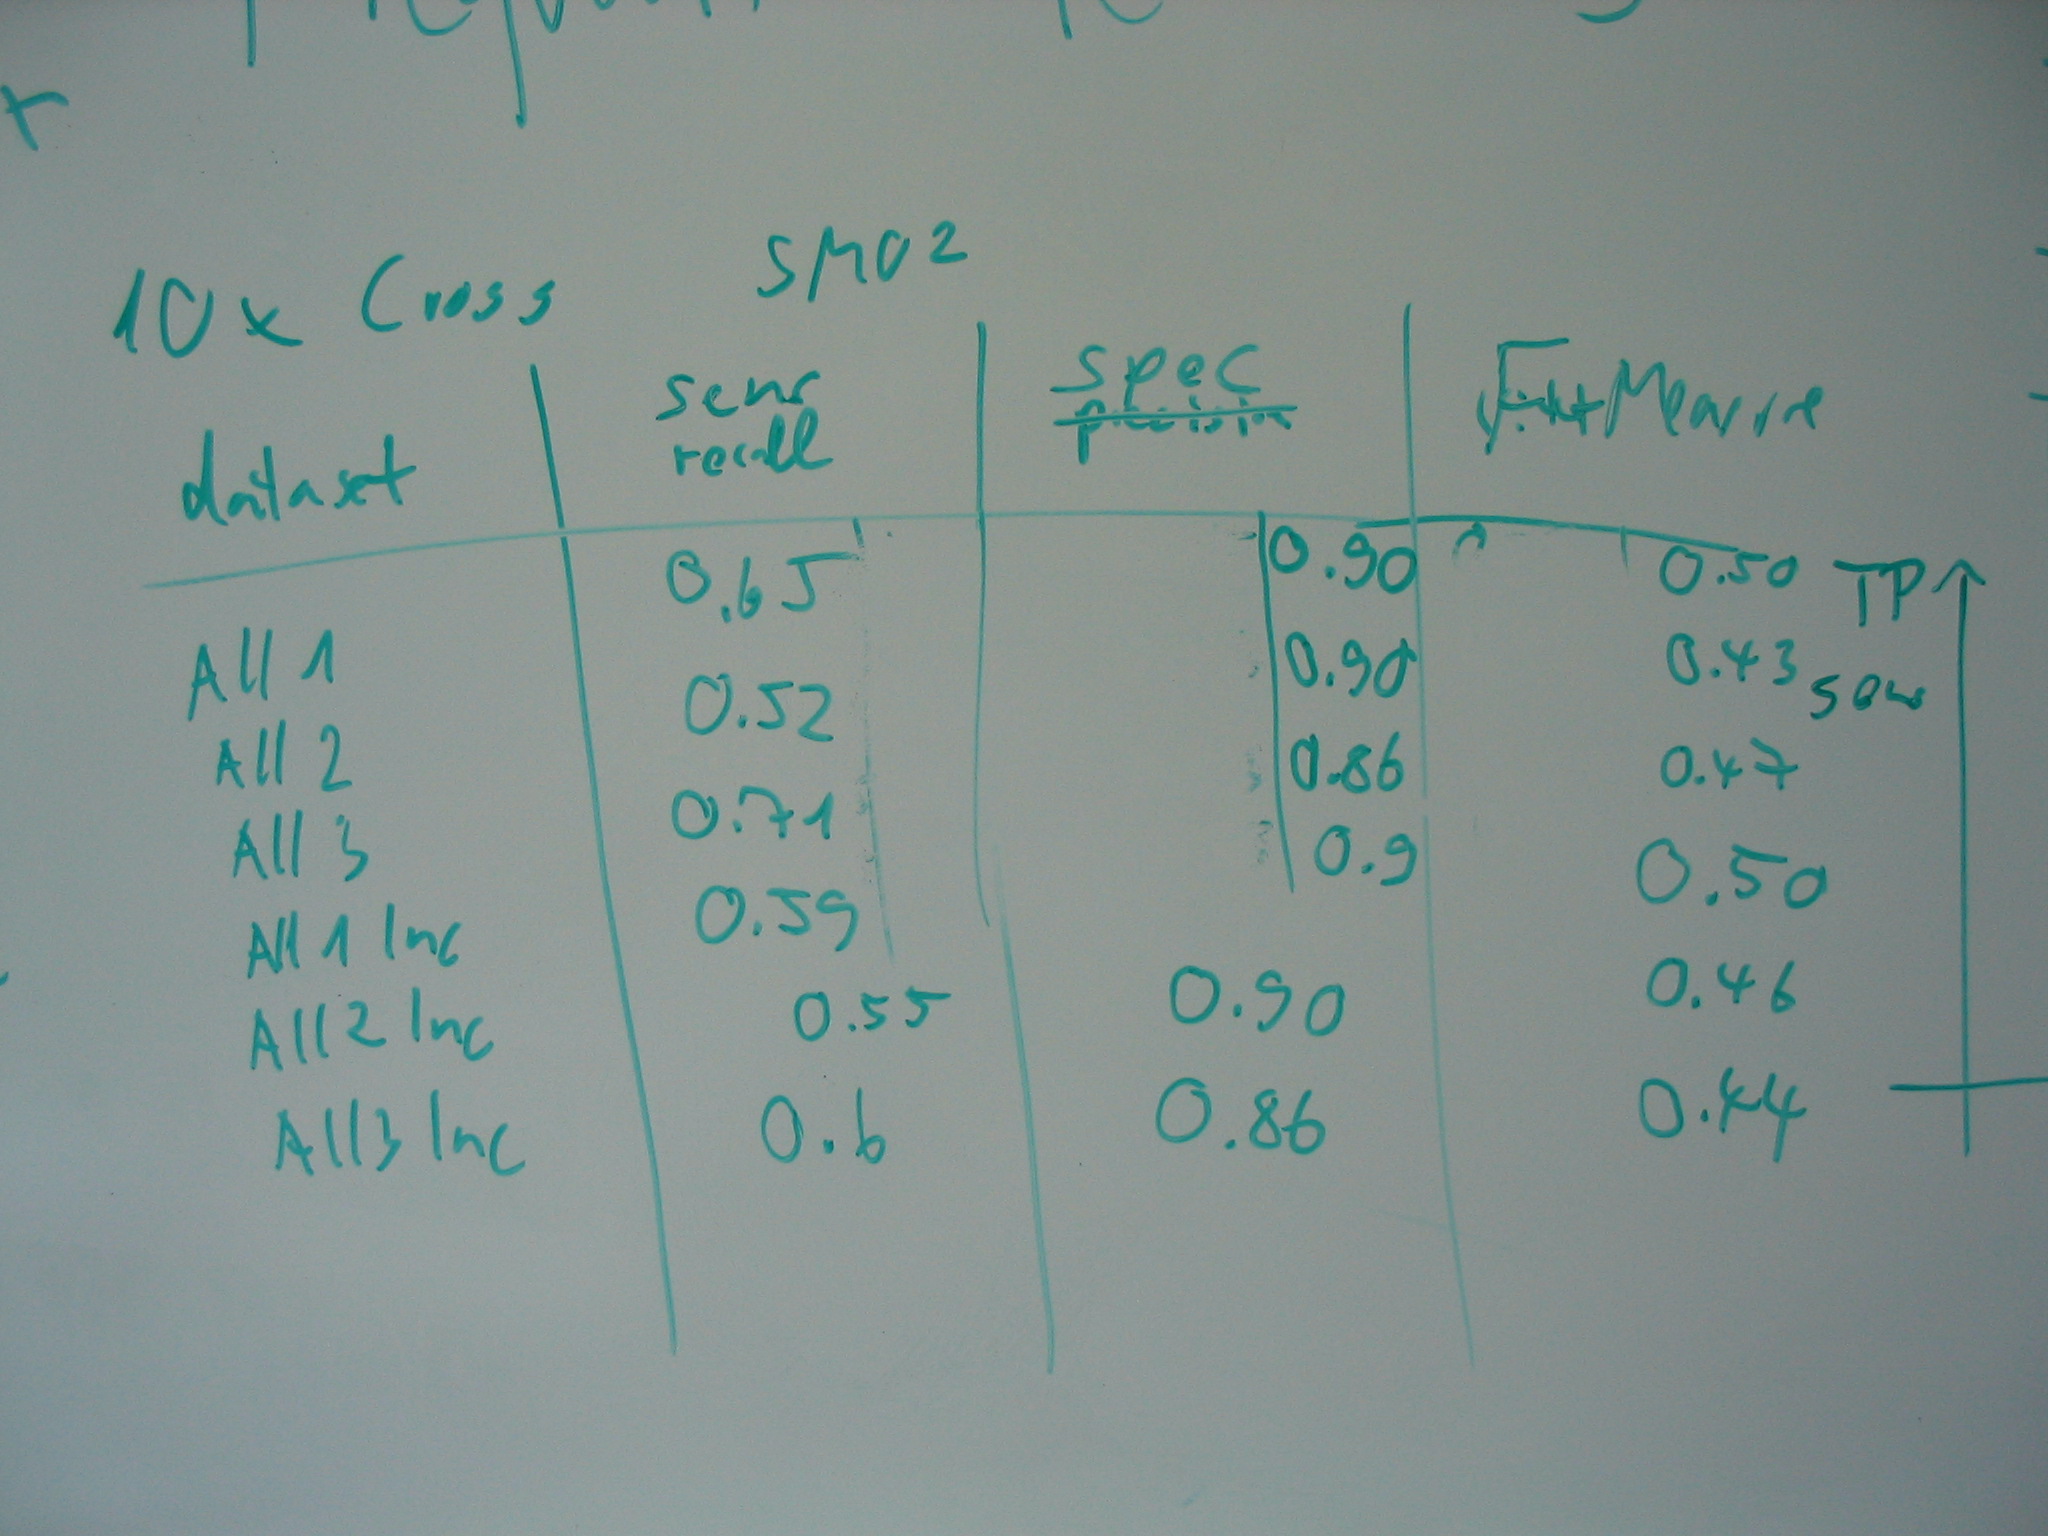 10x Cross SMO2
dataset sens recall spec precision Measure
All 1 0.65 0.90 0.50 TP
All 2 0.52 0.90 0.43 sens
All 3 0.71 0.86 0.47
All 1 Inc 0.59 0.9 0.50
All 2 Inc 0.55 0.90 0.46
All 3 Inc 0.6 0.86 0.44